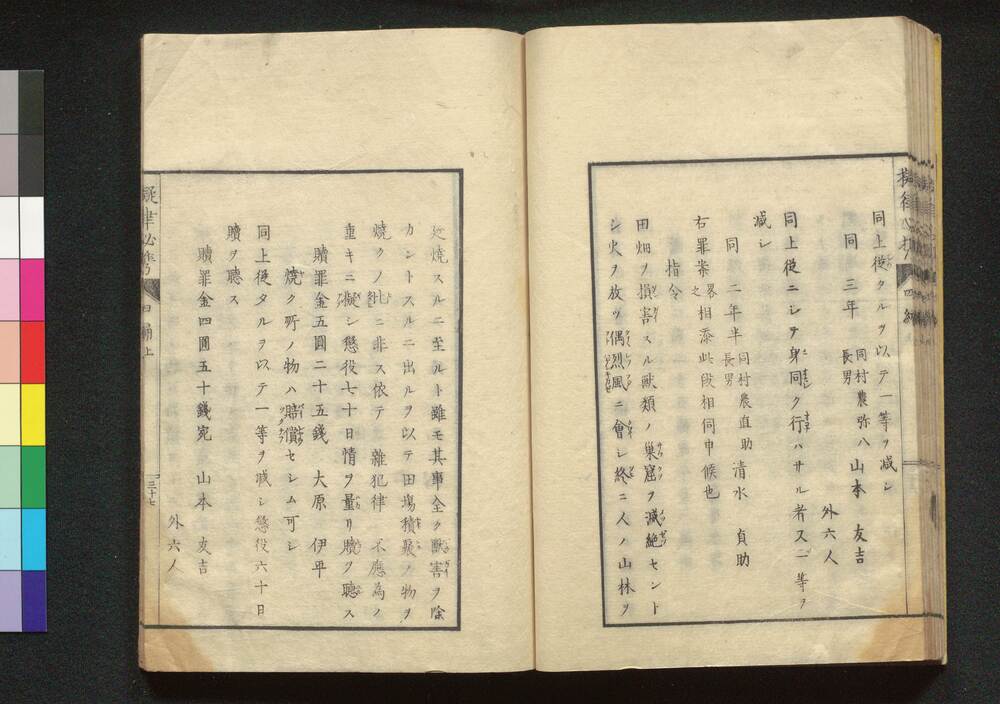 擬律必携 四編
同上従タルヲ以テ一等ヲ減シ
同 三年 同村農弥八長男 山本 友吉
外六人
同上従ニシテ身同ク行ハサル者又一等ヲ
減シ
同 二年半 同村農直助長男 清水 貞助
右罪案畧之相添此段相伺申候也
指令
田畑ヲ損害スル獣類ノ巣窟ヲ滅絶セント
シ火ヲ放ツ偶烈風ニ會シ終ニ人ノ山林ヲ
延焼スルニ至ルト雖モ其事全ク獣害ヲ除
カントスルニ出ルヲ以テ田塲積聚ノ物ヲ
焼クノ比ニ非ス依テ雜犯律不應為ノ
重キニ擬シ懲役七十日情ヲ量リ贖ヲ聴ス
贖罪金五圓二十五錢 大原 伊平
焼ク所ノ物ハ賠償セシム可シ
同上従タルヲ以テ一等ヲ減シ懲役六十日
贖ヲ聴ス
贖罪金四圓五十錢宛 山本 友吉
外六人
擬律必携 四編上 三十七